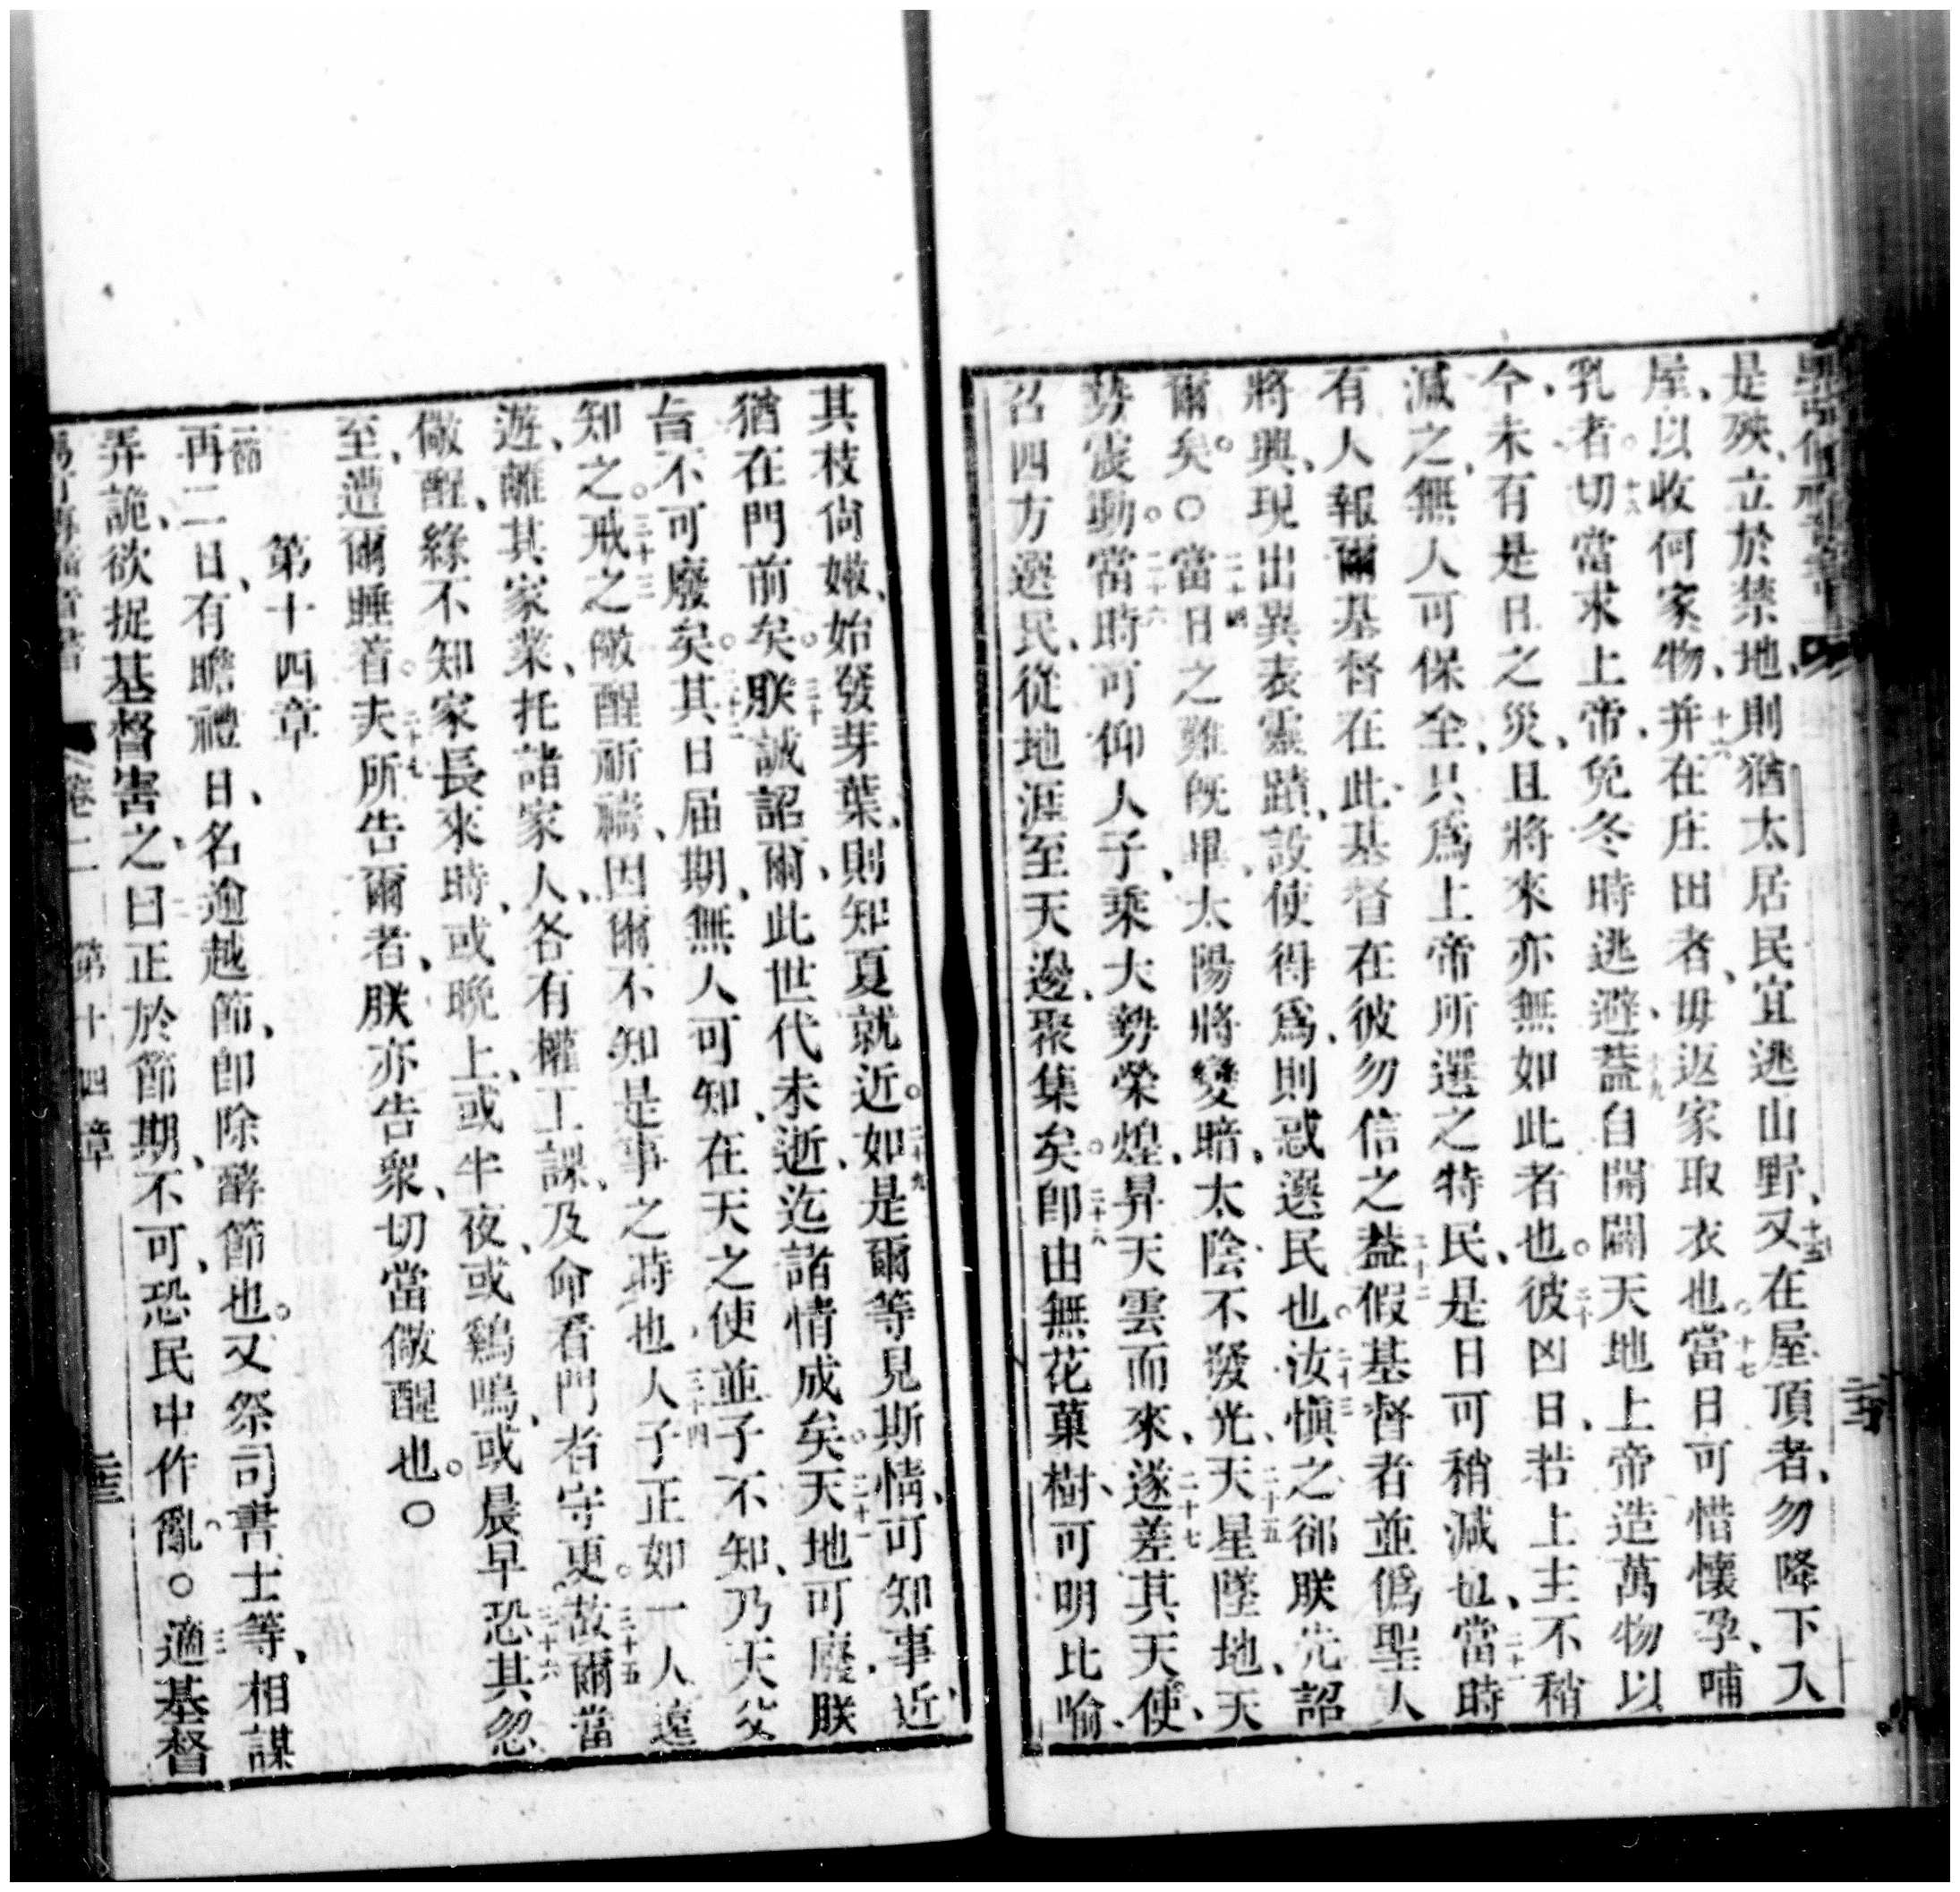 是殃、立於禁地、則猶太居民宜逃山野、十五又在屋頂者、勿降下入
屋、以收何家物、十六并在庄田者、毋返家取衣也。十七當日可惜懷孕、哺
乳者。十八切當求上帝、免冬時逃避、十九蓋自開闢天地上帝造萬物以
今、未有是日之災、且將來亦無如此者也。二十彼凶日、若上主不稍
減之、無人可保全、只爲上帝所選之特民、是日可稍減也、二十一當時
有人報爾基督在此、基督在彼勿信之、二十二蓋假基督者並僞聖人
將興、現出異表靈蹟、設使得爲、則惑選民也。二十三汝愼之、郤朕先詔
爾矣。○二十四當日之難旣畢、太陽將變暗、太陰不發光、二十五天星墜地、天
勢震動。二十六當時可仰人子、乘大勢榮煌、昇天雲而來、二十七遂差其天使、
召四方選民、從地涯至天邊、聚集矣。二十八卽由無花菓樹、可明比喻、
其枝尙嫩、始發芽葉、則知夏就近。二十九如是爾等見斯情、可知事近、
猶在門前矣。三十朕誠詔爾、此世代未逝、迄諸情成矣。三十一天地可廢、朕
言不可廢矣。三十二其日屆期、無人可知、在天之使並子不知、乃天父
知之。三十三戒之儆醒祈禱、因爾不知是事之時也、三十四人子正如一人遠
遊、離其家業、托諸家人、各有權工課、及命看門者守更。三十五故爾當
儆醒、緣不知家長來時、或晚上、或半夜、或鷄鳴、或晨早、三十六恐其忽
至、遭爾睡着。三十七夫所告爾者、朕亦告衆、切當儆醒也。○
第十四章
一節再二日、有瞻禮日、名逾越節、卽除酵節也。又祭司書士等、相謀
弄詭、欲捉基督害之、二曰正於節期、不可、恐民中作亂。○三適基督
卷二 第十四章 二十三